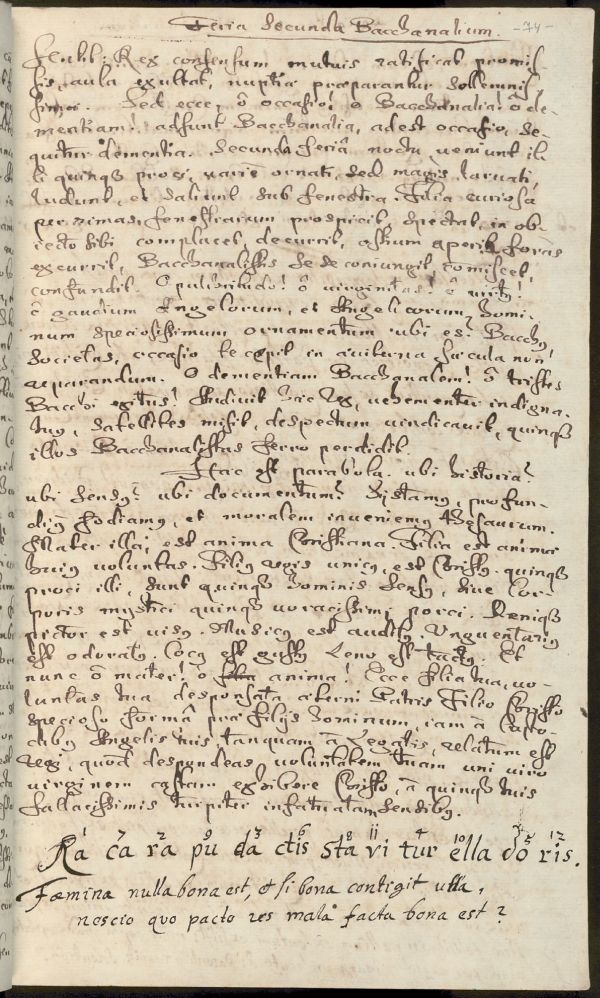 Feria secunda Bacchanalium. -74-
sensit: Rex consensum mutuis ratificat promis
sis, aula exultat, nuptiæ præparantur sollemnis
simæ. Sed ecce, ô occasio, o Bacchanalia! ô de=
mentiam! adsunt Bacchanalia, adest occasio, se=
quitur dementia. Secunda feriâ noctu veniunt il=
li quinq proci, varie ornati, sed magis laruati,
ludunt, et saliunt sub fenestra. Filia curiosa
per rimas fenestrarum prospicit, spectat, in ob=
iecto sibi complacet, decurrit, ostium aperit, foras
excurrit, Bacchanalistis se se coniungit, comiscet,
confundit. O pulchritudo! ô virginitas! ô virtus!
ô gaudium Angelorum, et Angelicorum homi=
num speciosissimum ornamentum ubi es? Bacchi
societas, occasio te cepit in æviterna sæcula non
reparandum. O dementiam Bacchanalem! ô tristes
Bacchi exitus! Audivit hæc Rex, vehementer indigna=
tus, satellites misit, despectum vindicavit, quinq
illos Bacchanalistas ferro perdidit.
Hæc est parabola. ubi historia?
ubi sensus? ubi documentum? sistamus, profun=
dius fodiamus, et moralem inveniemus thesaurum.
Mater illa, est anima Christiana. Filia est animæ
huius voluntas. Filius regis unicus, est Christus. quinq
proci illi, sunt quinq hominis sensus, sive cor=
poris mystici quinq voracissimi porci. Deniq
pictor est visus. Musicus est auditus. Unguentarius
est odoratus. Cocus est gustus. Leno est tactus. Et
nunc ô mater! ô anima! Ecce filia tua, vo=
luntas tua desponsata æterni Patris Filio Christo
specioso formâ præ filijs hominum, iam â Custo=
dibus Angelis tuis tanquam â Legatis, relatum est
regi, quod despondeas voluntatem tuam uni viro
virginem castam exhibere Christo, â quinq tuis
fallacissimis turpiter infatuatam sensibus.
1 7 2 9 3 6 8 11 4 10 5 12
Ra ca ra pu da ctis sta vi tur ella do ris.
Fæmina nulla bona est, et si bona contigit ulla,
nescio quo pacto res mala facta bona est?